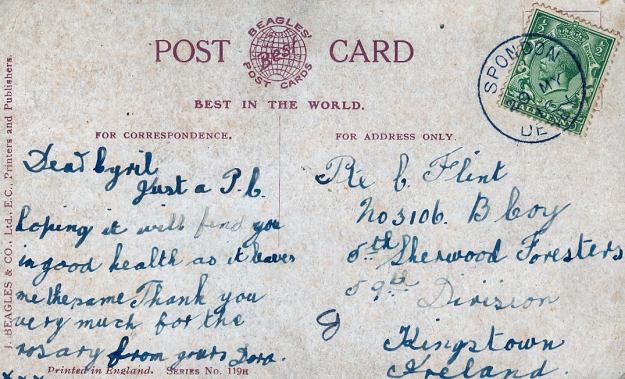 POST CARD
BEAGLES'
Best
POST CARDS
BEST IN THE WORLD.
FOR CORRESPONDENCE.
FOR ADDRESS ONLY.
J. BEAGLES & CO., Ltd., E.C., Printers and Publishers.
Dear Cyril
Just a P.C.
hoping it will find you
in good health as it leaves
me the same Thank you
very much for the
rosary from yours Dora.
x x x
Pte C. Flint
No 3106. B Coy
5th Sherwood Foresters
59th Division
Kingstown
Ireland.
Printed in England. SERIES No. 119H
SPONDON
MY
DE
½ ½